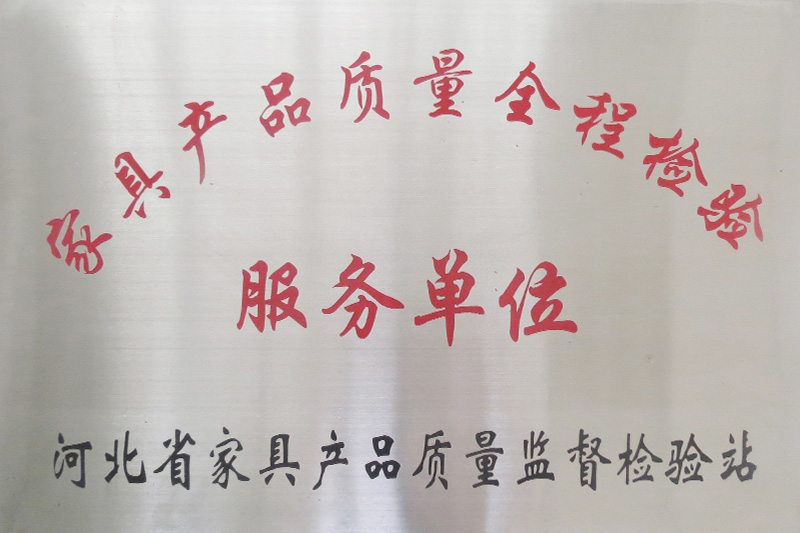 家具产品质量全程检验
服务单位
河北省家具产品质量监督检验站